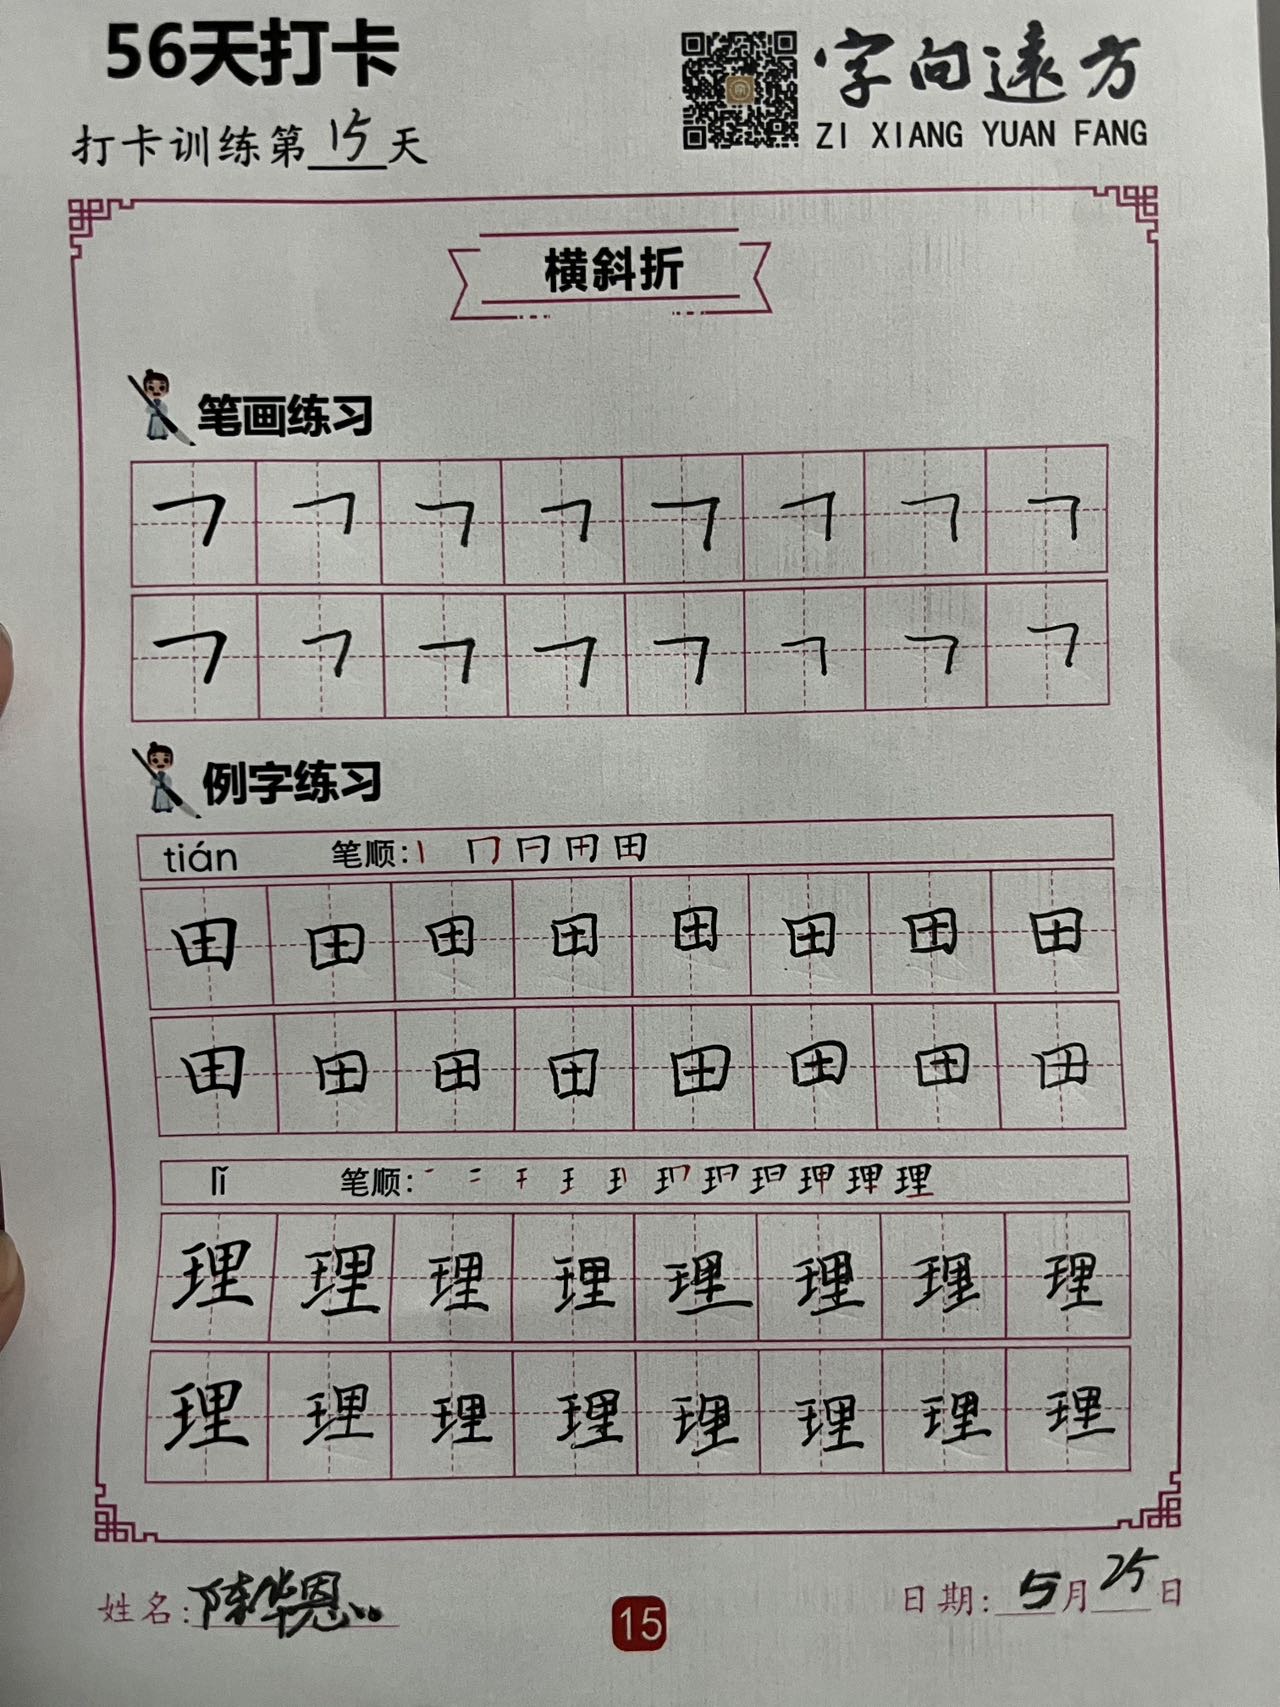 56天打卡
字向遠方
ZI XIANG YUAN FANG
打卡训练第15天
横斜折
笔画练习
𠃍 𠃍 𠃍 𠃍 𠃍 𠃍 𠃍 𠃍
𠃍 𠃍 𠃍 𠃍 𠃍 𠃍 𠃍 𠃍
例字练习
tián 笔顺: 田
田 田 田 田 田 田 田 田
田 田 田 田 田 田 田 田
lǐ 笔顺: 理
理 理 理 理 理 理 理 理
理 理 理 理 理 理 理 理
姓名:陈华恩
15
日期:5月25日